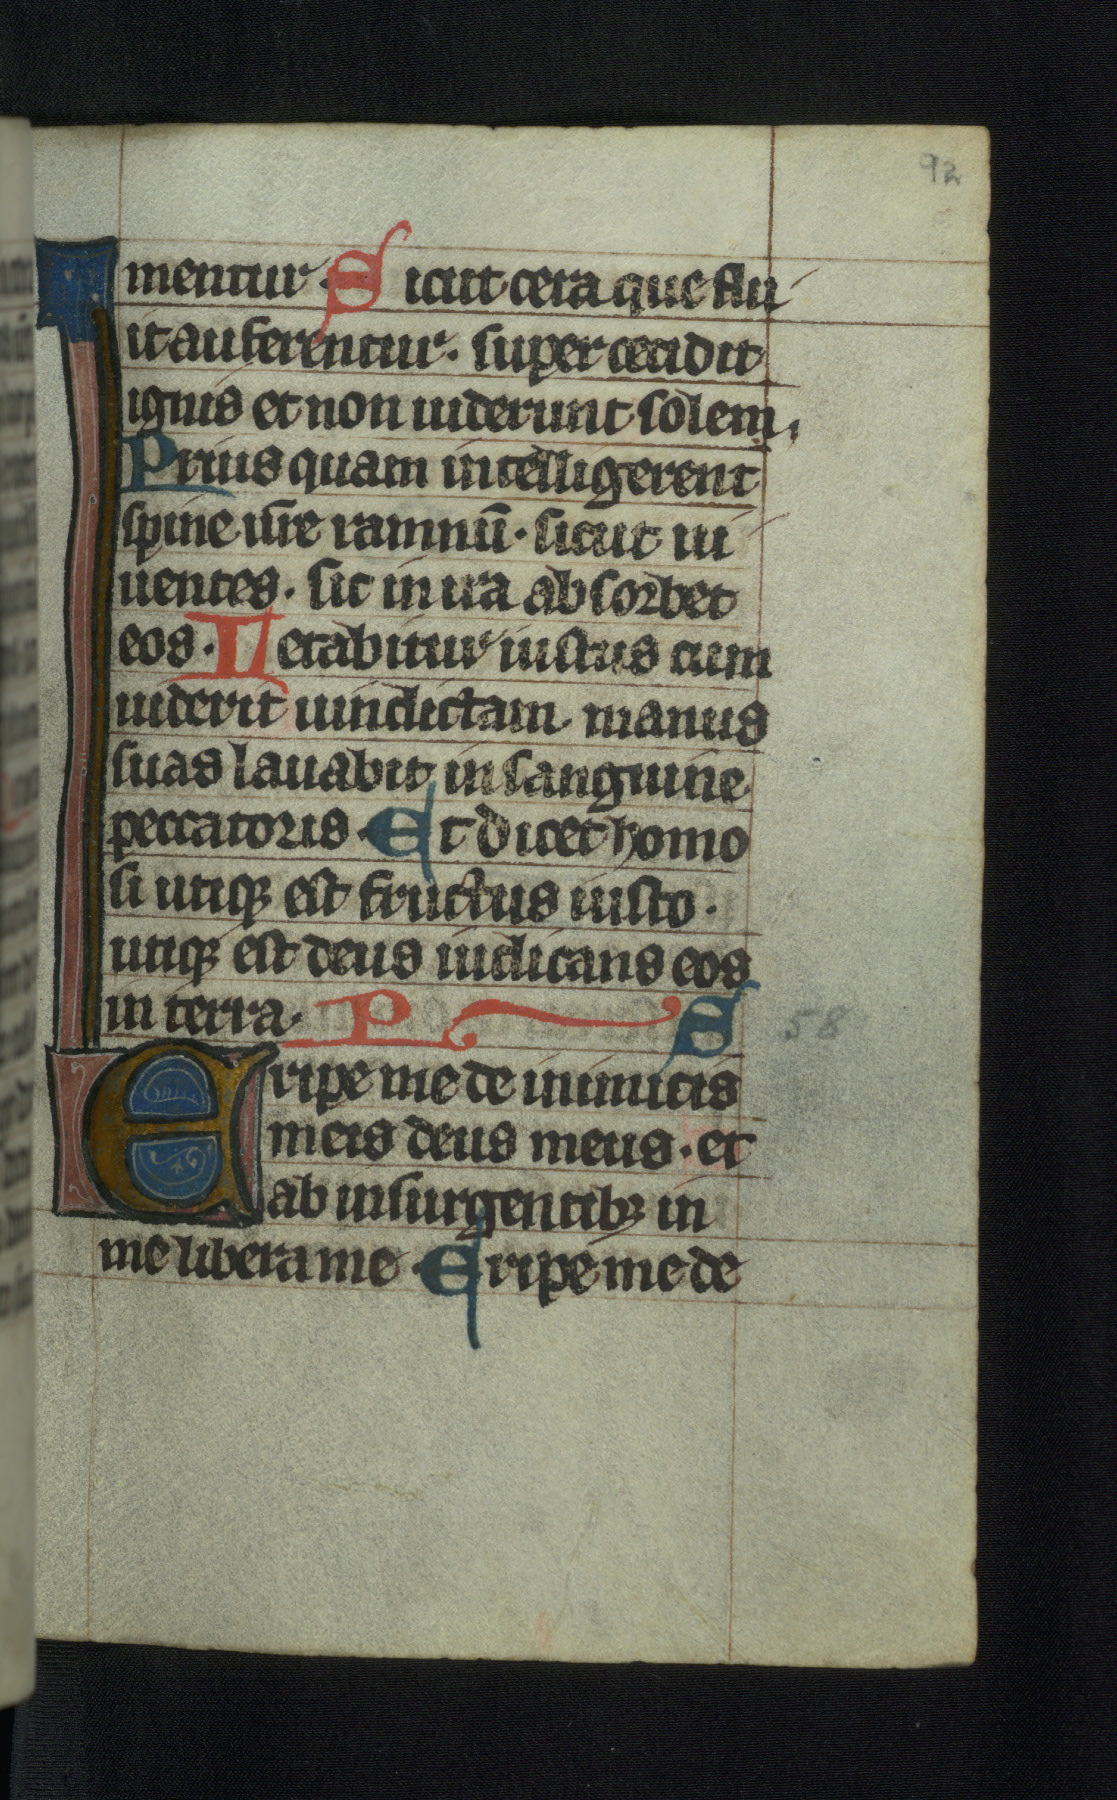 92
mentur. Sicut cera que flu
it auferentur. super cecidit
ignis et non uiderunt solem.
Prius quam intelligerent
spine ur̄e ramnū. sicut ui
uentes. sic in ira absorbet
eos. Letabitur iustus cum
uiderit uindictam. manus
suas lauabit in sanguine
peccatoris. Et dicet homo
si utiqꝫ est fructus iusto.
utiqꝫ est deus iudicans eos
in terra. PS 58
Eripe me de inimicis
meis deus meus. et
ab insurgentibꝫ in
me libera me. Eripe me de